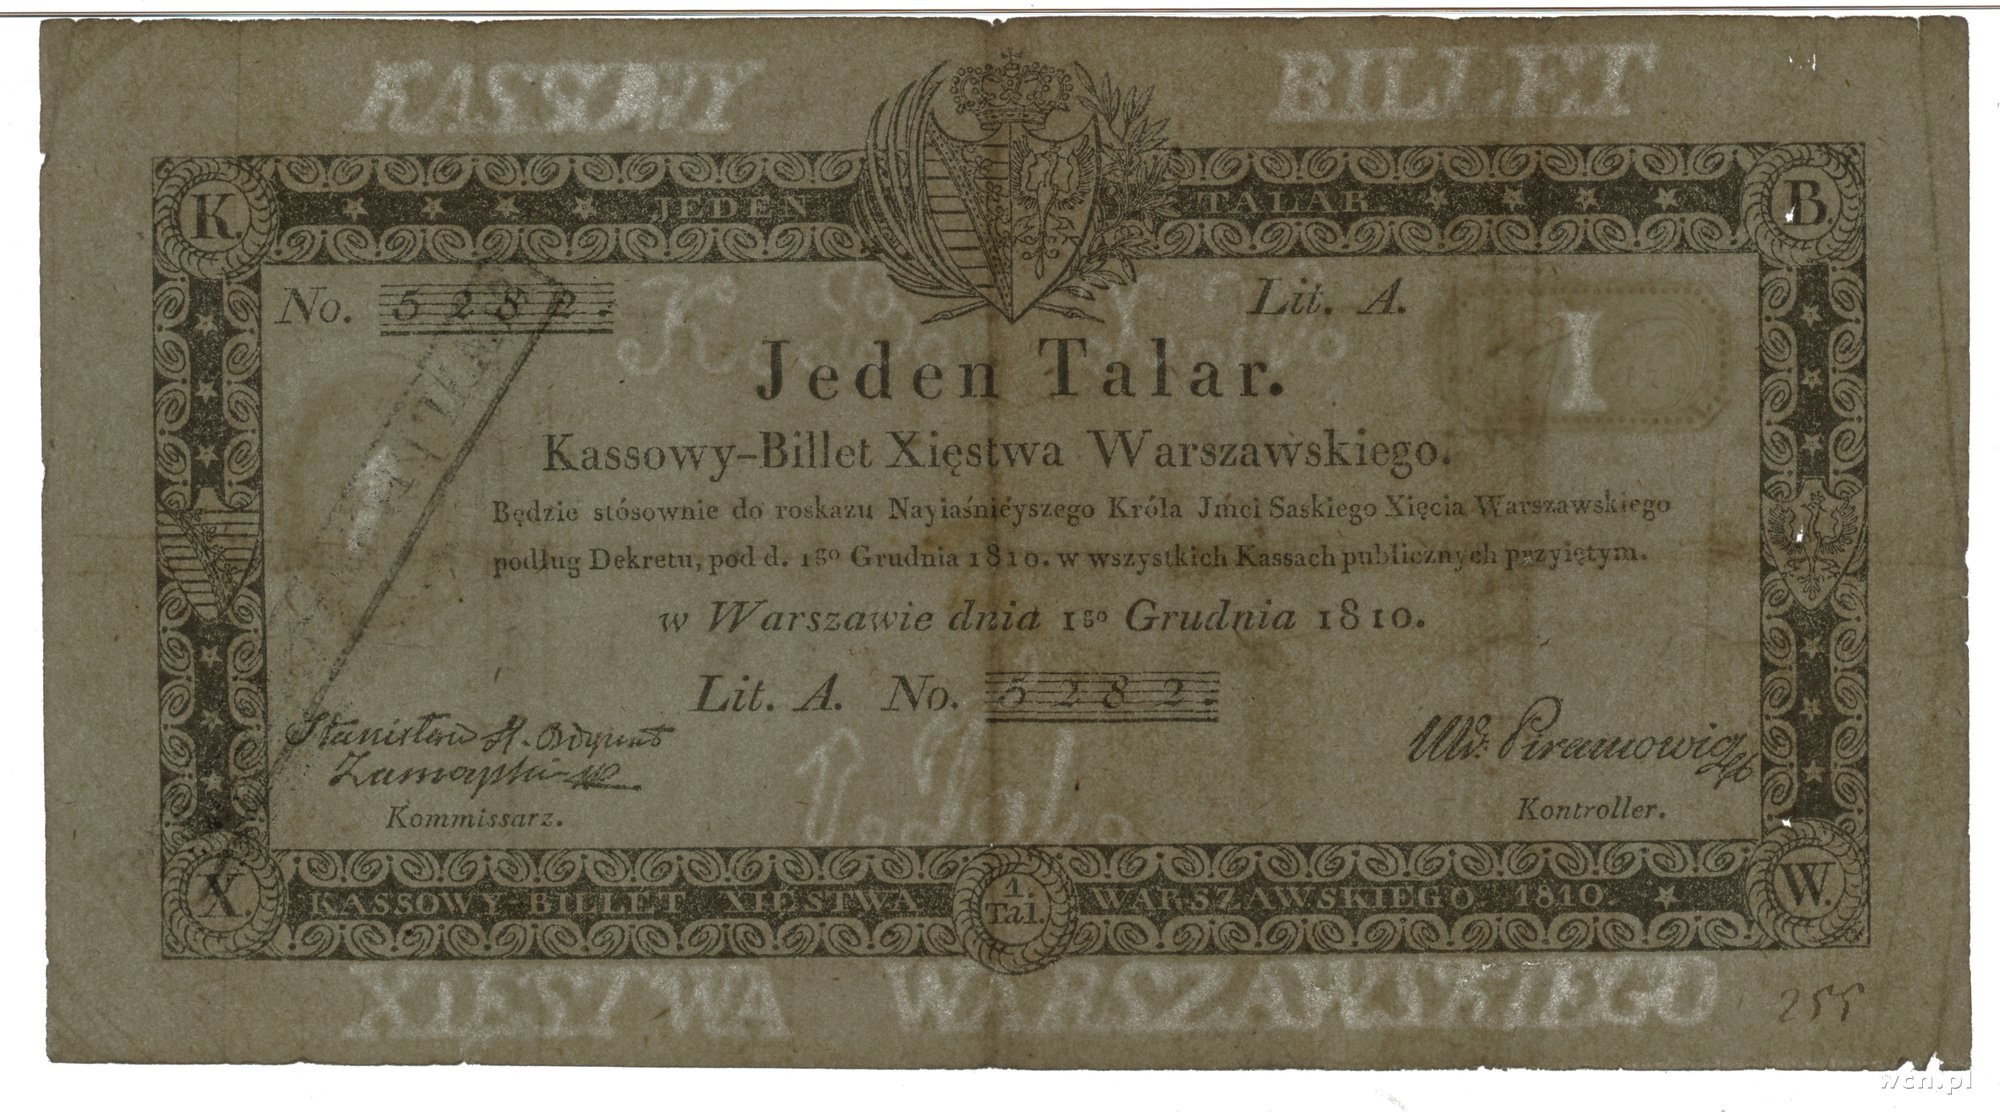 KASSOWY BILLET
K. JEDEN TALAR. B.
No. 5282. Lit. A.
I
Jeden Talar.
Kassowy-Billet Xięstwa Warszawskiego.
Będzie stósownie do roskazu Nayiaśniéyszego Króla Jmci Saskiego Xięcia Warszawskiego
podług Dekretu, pod d. 1go Grudnia 1810. w wszystkich Kassach publicznych przyiętym.
w Warszawie dnia 1go Grudnia 1810.
Lit. A. No. 5282.
Stanisław
Kommissarz.
Piramowicz
Kontroller.
X. KASSOWY-BILLET XIĘSTWA 1. Tal. WARSZAWSKIEGO. 1810. W.
XIESTWA WARSZAWSKIEGO
255
wcn.pl